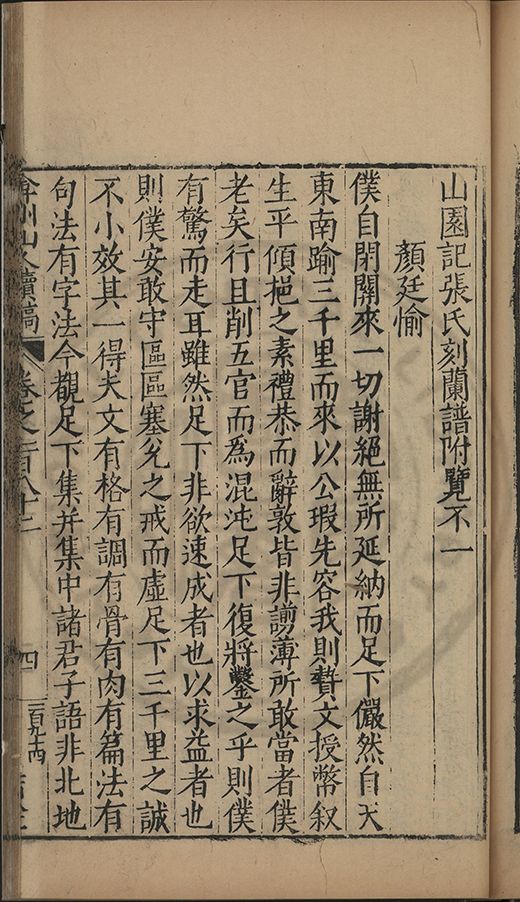 山園記張氏刻蘭譜附覽不一
顏廷愉
僕自閉關來一切謝絕無所延納而足下儼然自天
東南踰三千里而來以公瑕先容我則贄文授幣叙
生平傾挹之素禮恭而辭敦皆非謭薄所敢當者僕
老矣行且削五官而爲混沌足下復將鑿之乎則僕
有驚而走耳雖然足下非欲速成者也以求益者也
則僕安敢守區區塞兊之戒而虛足下三千里之誠
不小效其一得夫文有格有調有骨有肉有篇法有
句法有字法今覩足下集并集中諸君子語非北地
弇州山人續稿
卷之一百八十二
四